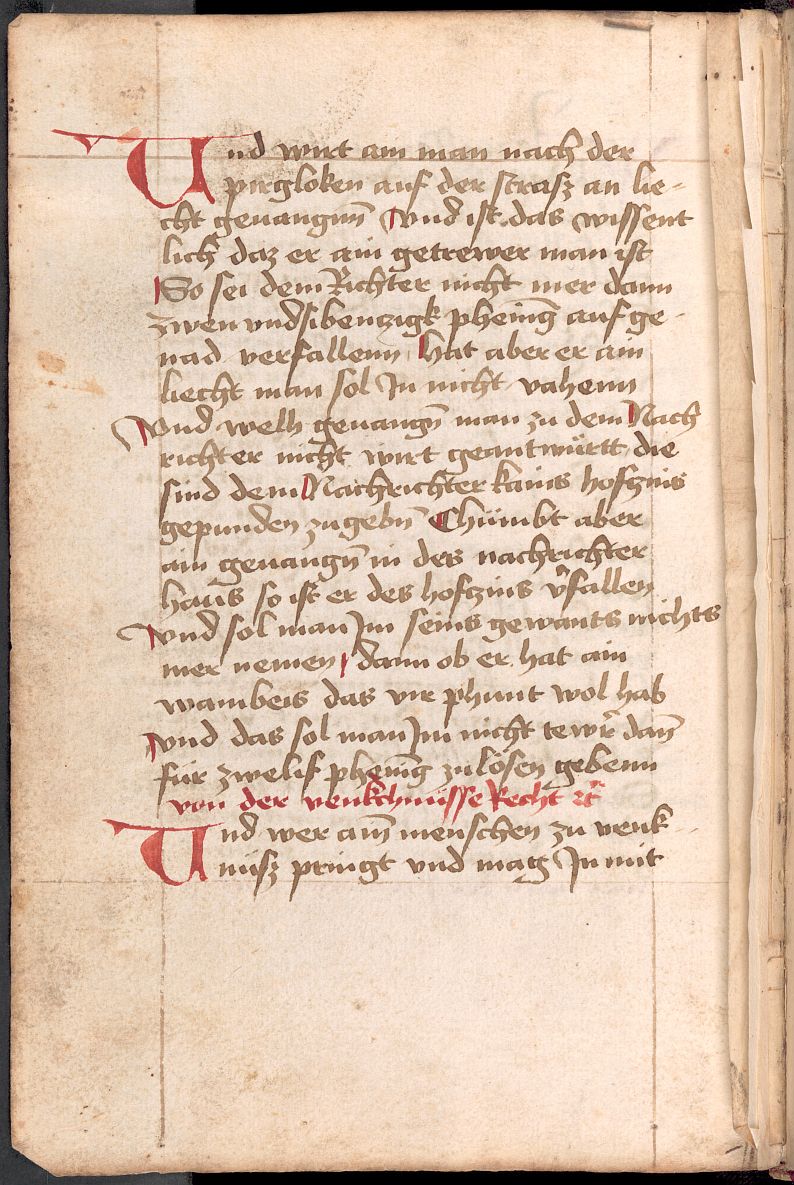 Und wirt ain man nach der
pirgloken auf der strasz an lie-
cht geuangnn̄ Vnd ist das wissent
lich daz er ain getrewer man ist
So sei dem Richter nicht mer dann
zwen vndsibenczigk phenīg auf ge-
nad verfallenn hat aber er ain
liecht man sol In nicht vahenn
Vnd welh geuangn̄ man zu dem Nach
richter nicht wirt geantwürtt die
sind dem Nachrichter kains hofczins
gepunden zugebn̄ Chümbt aber
ain geuangn̄ in des nachrichter
haus so ist er des hofczins v̄fallen
Vnd sol man Im seins gewants nichts
mer nemen dann ob er hat ain
wambeis das vir phunt wol hab
Vnd das sol man Im nicht tewr̄ dan̄
für zwelif phenīg zulösen gebenn
von der venkchnüsse Recht ꝛc̄
Und wer ain̄ menschen zu venk-
nüsz pringt vnd mag In mit